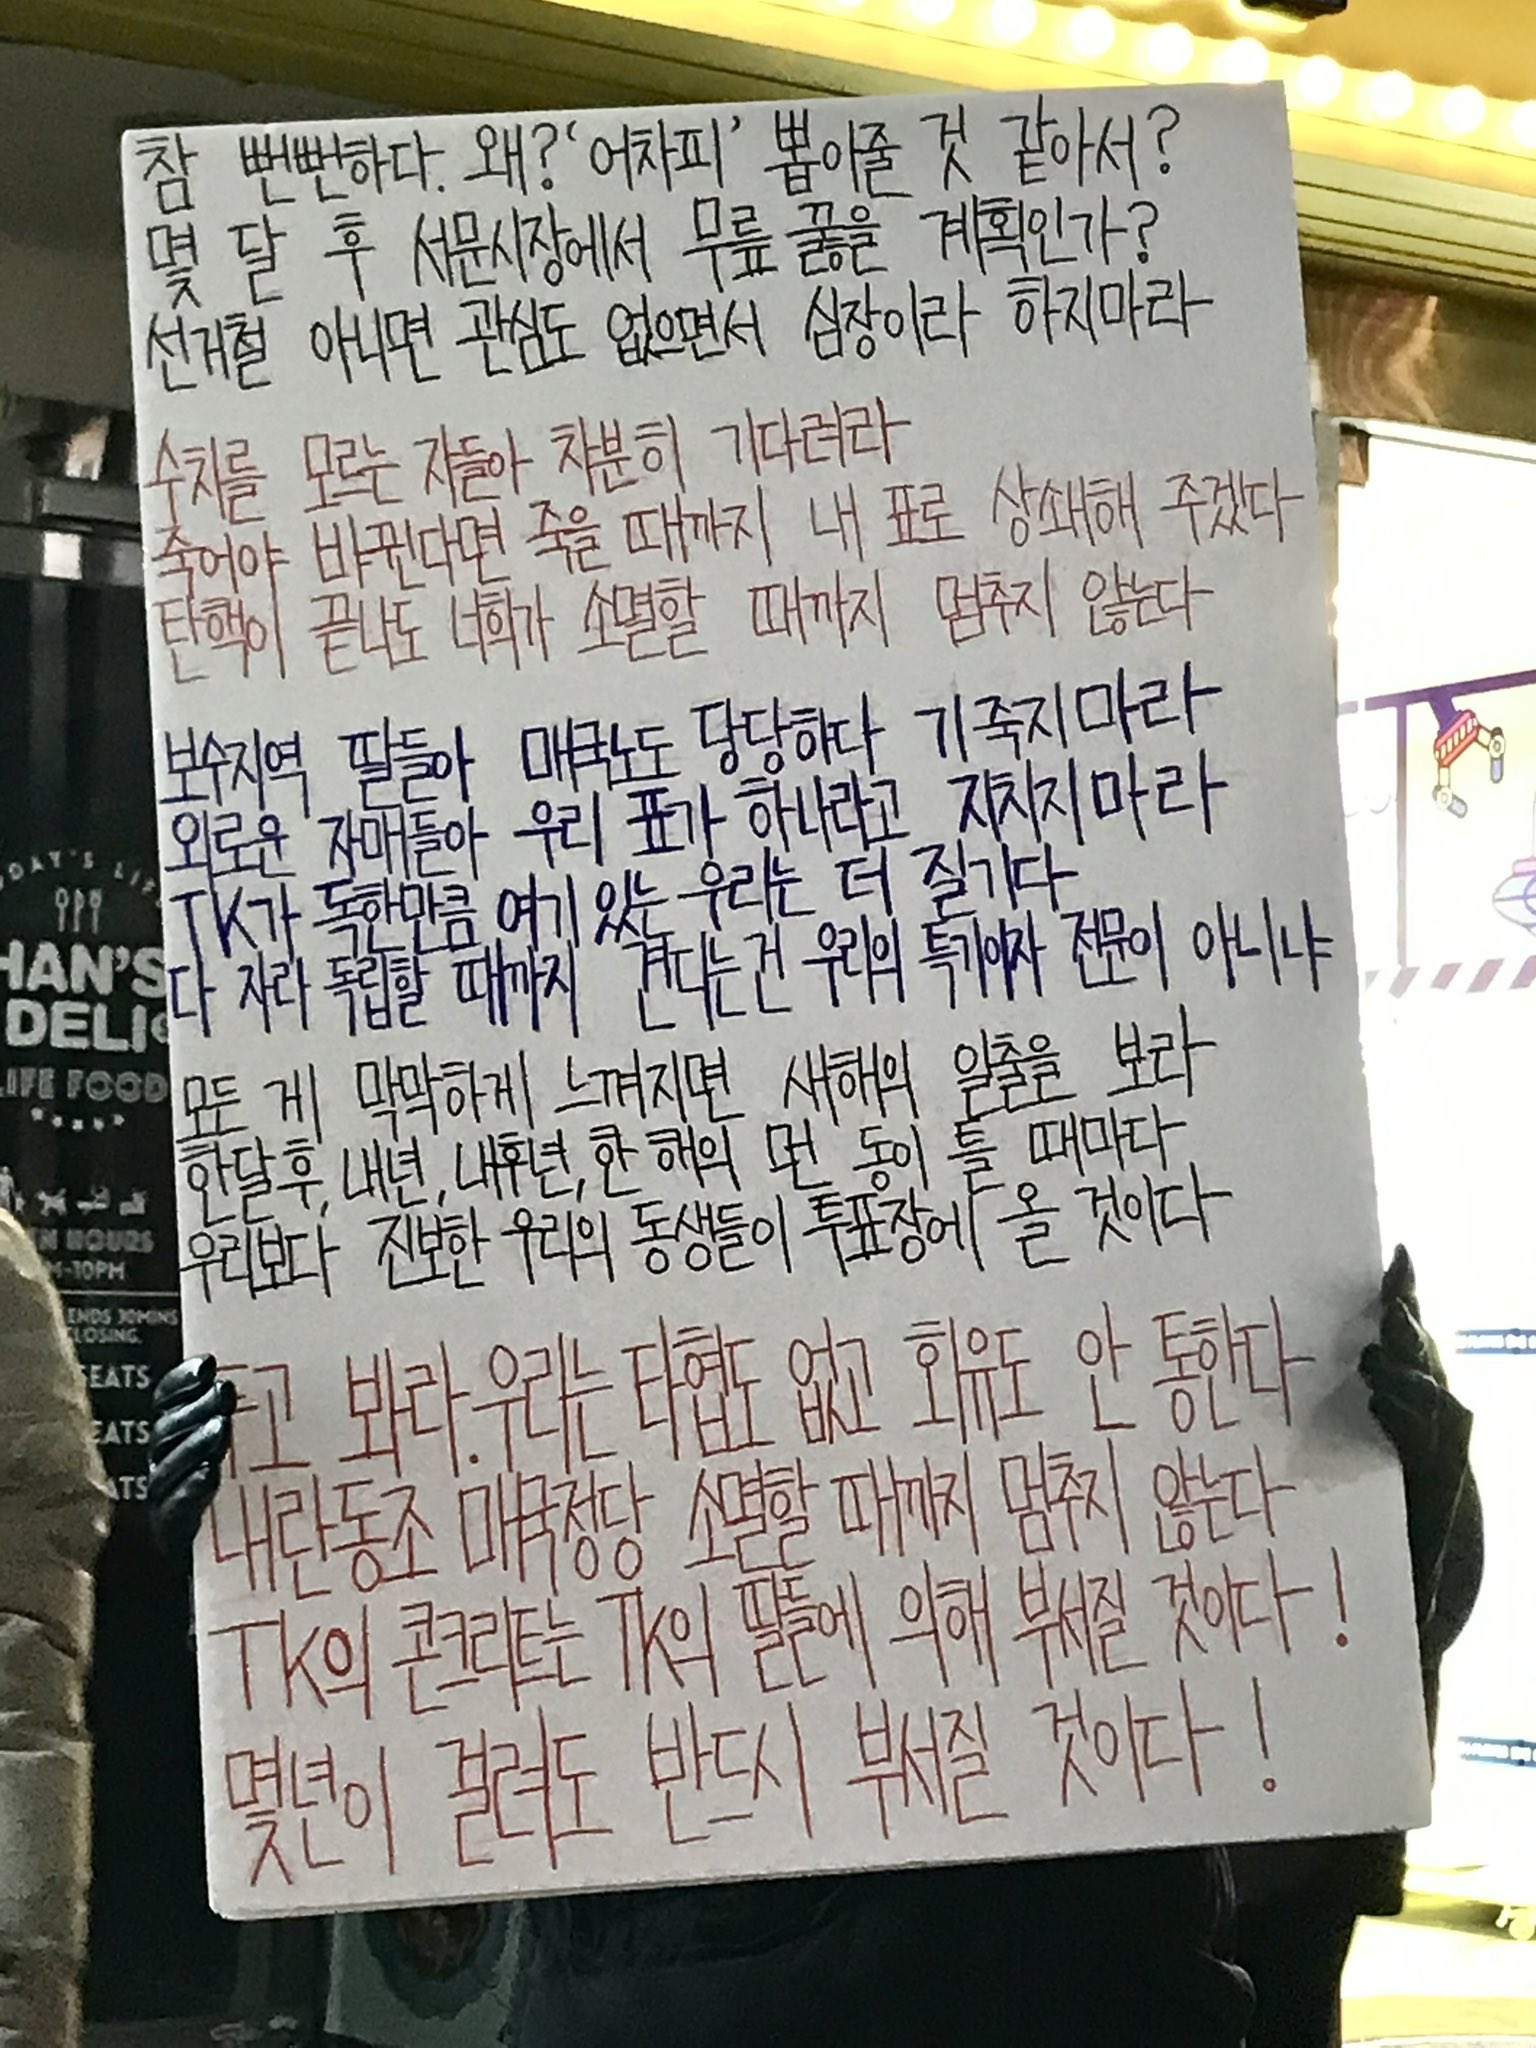 참 뻔뻔하다. 왜? '어차피' 뽑아줄 것 같아서?
몇 달 후 서문시장에서 무릎 꿇을 계획인가?
선거철 아니면 관심도 없으면서 심장이라 하지마라
수치를 모르는 자들아 차분히 기다려라
죽어야 바뀐다면 죽을 때까지 내 표로 상쇄해 주겠다
탄핵이 끝나도 너희가 소멸할 때까지 멈추지 않는다
보수지역 딸들아 매국노도 당당하다 기죽지마라
외로운 자매들아 우리 표가 하나라고 지치지마라
TK가 독한만큼 여기 있는 우리는 더 질기다
다 자라 독립할 때까지 견디는건 우리의 특기이자 전문이 아니냐
모든 게 막막하게 느껴지면 새해의 일출을 보라
한달후, 내년, 내후년, 한 해의 먼 동이 틀 때마다
우리보다 진보한 우리의 동생들이 투표장에 올 것이다
두고 봐라. 우리는 타협도 없고 회유도 안 통한다
내란동조 매국정당 소멸할 때까지 멈추지 않는다
TK의 콘크리트는 TK의 딸들에 의해 부서질 것이다!
몇년이 걸려도 반드시 부서질 것이다!
HAN'S
DELI
LIFE FOOD
HOURS
-10PM
ENDS 30MINS
CLOSING.
EATS
EATS